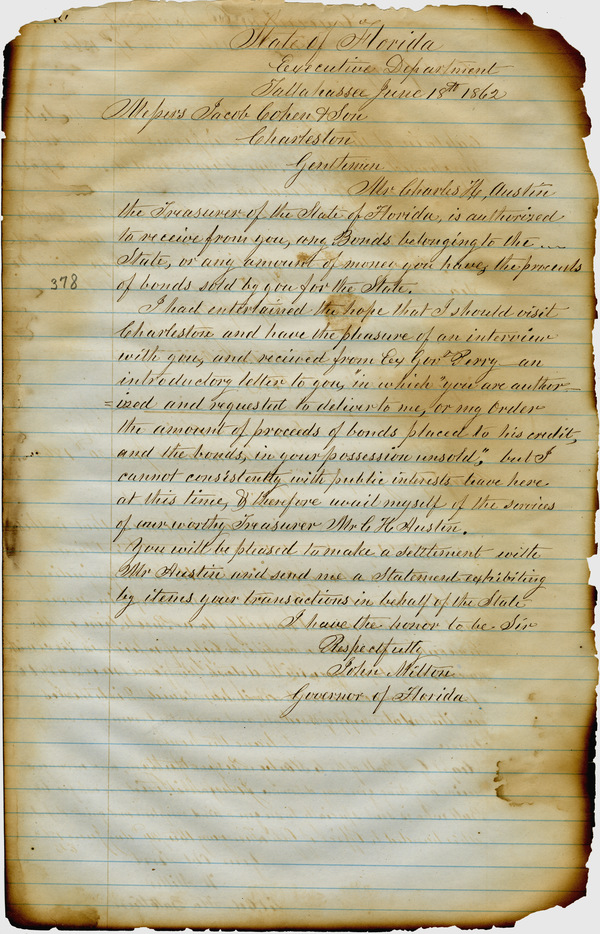 State of Florida
Executive Department
Tallahassee June 18th 1862
Messrs Jacob Cohen & Son
Charleston
Gentlemen
Mr Charles H, Austin
the Treasurer of the State of Florida, is authorized
to receive from you, any Bonds belonging to the
State, or any amount of money you have, the proceeds
378
of bonds sold by you for the State.
I had entertained the hope that I should visit
Charleston and have the pleasure of an interview
with you, and recived from Ex Govr Perry an
introductory letter to you, "in which "you are author=
=ized and requested to deliver to me, or my Order
the amount of proceeds of bonds placed to his credit,
and the bonds, in your possession unsold", but I
cannot consistently with public interests leave here
at this time, & therefore avail myself of the services
of our worthy Treasurer Mr C H Austin.
You will be pleased to make a settlement with
Mr Austin and send me a Statement exhibiting
by items your transactions in behalf of the State
I have the honor to be Sir
Respectfully
John Milton
Governor of Florida